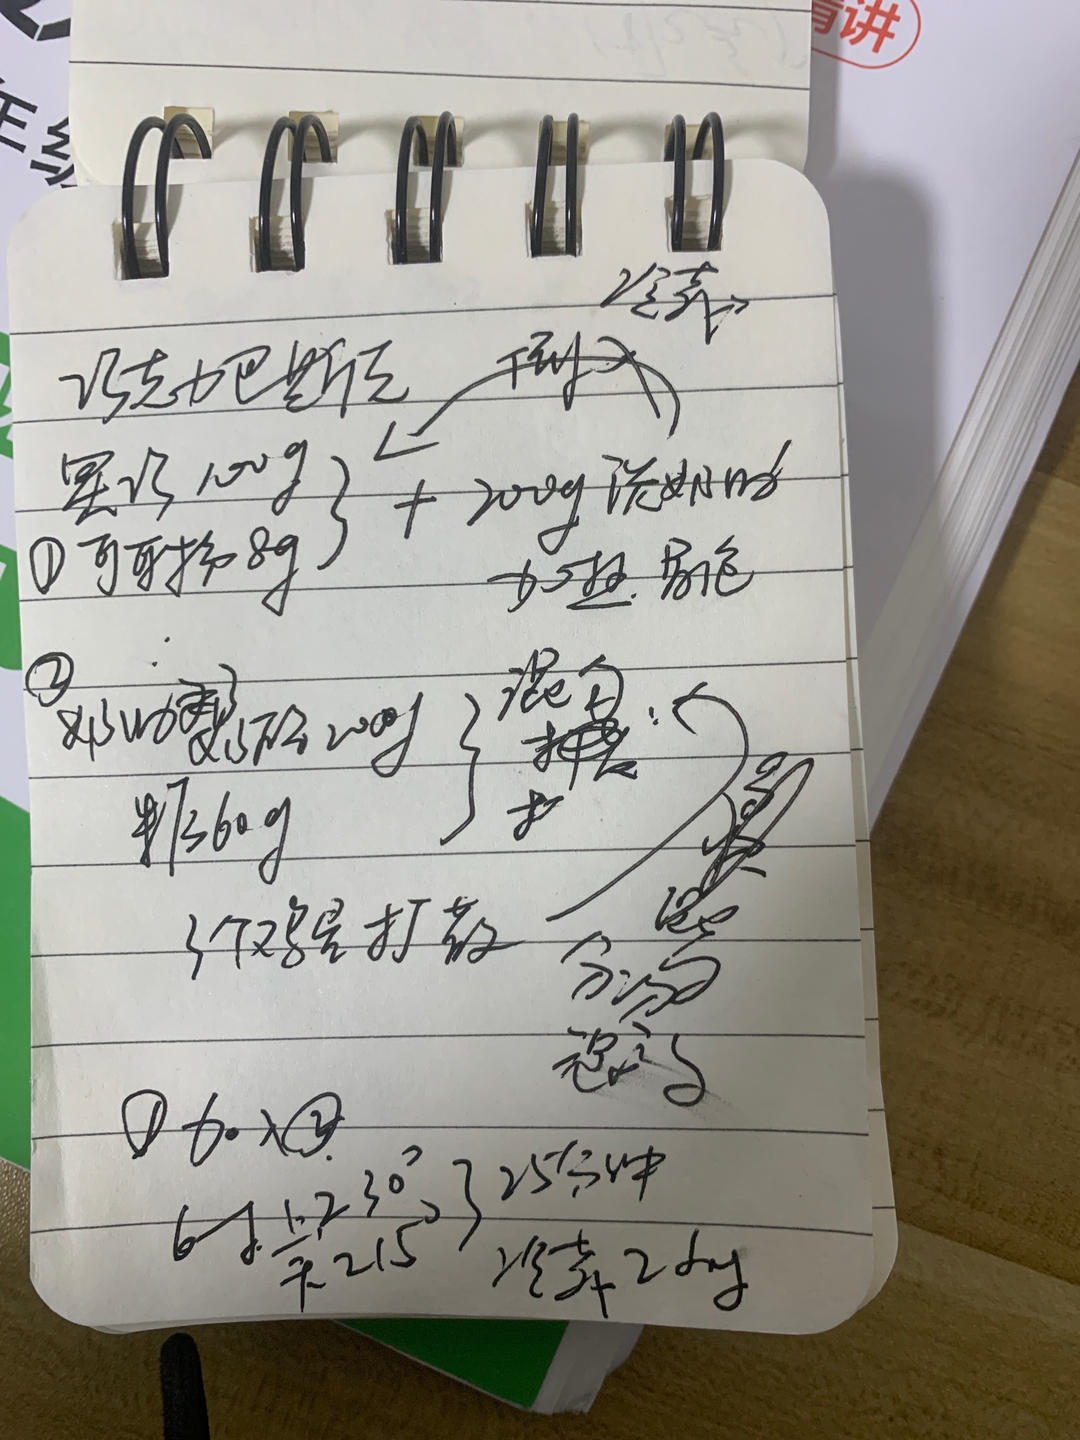 精讲
年级
冷藏
巧克力巴斯克
倒入
黑巧100g
+ 200g淡奶油
①可可粉8g
加热 冒泡
②
奶酪200g
混合
糖60g
3个鸡蛋打散
分次
①加入②
6寸 上230°
下215°
25分钟
冷藏 2day